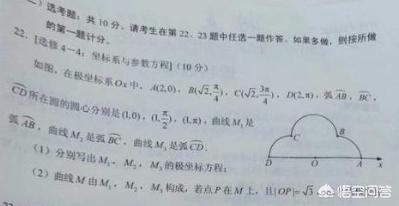 ）选考题：共10分．请考生在第22、23题中任选一题作答．如果多做，则按所做
的第一题计分．
22．[选修4—4：坐标系与参数方程]（10分）
如图，在极坐标系Ox中，A(2,0)，B(√2,π/4)，C(√2,3π/4)，D(2,π)，弧AB，BC，
CD所在圆的圆心分别是(1,0)，(1,π/2)，(1,π)，曲线M₁是
弧AB，曲线M₂是弧BC，曲线M₃是弧CD．
（1）分别写出M₁，M₂，M₃的极坐标方程；
（2）曲线M由M₁，M₂，M₃构成，若点P在M上，且|OP|=√3
C B
D O A x
悟空问答